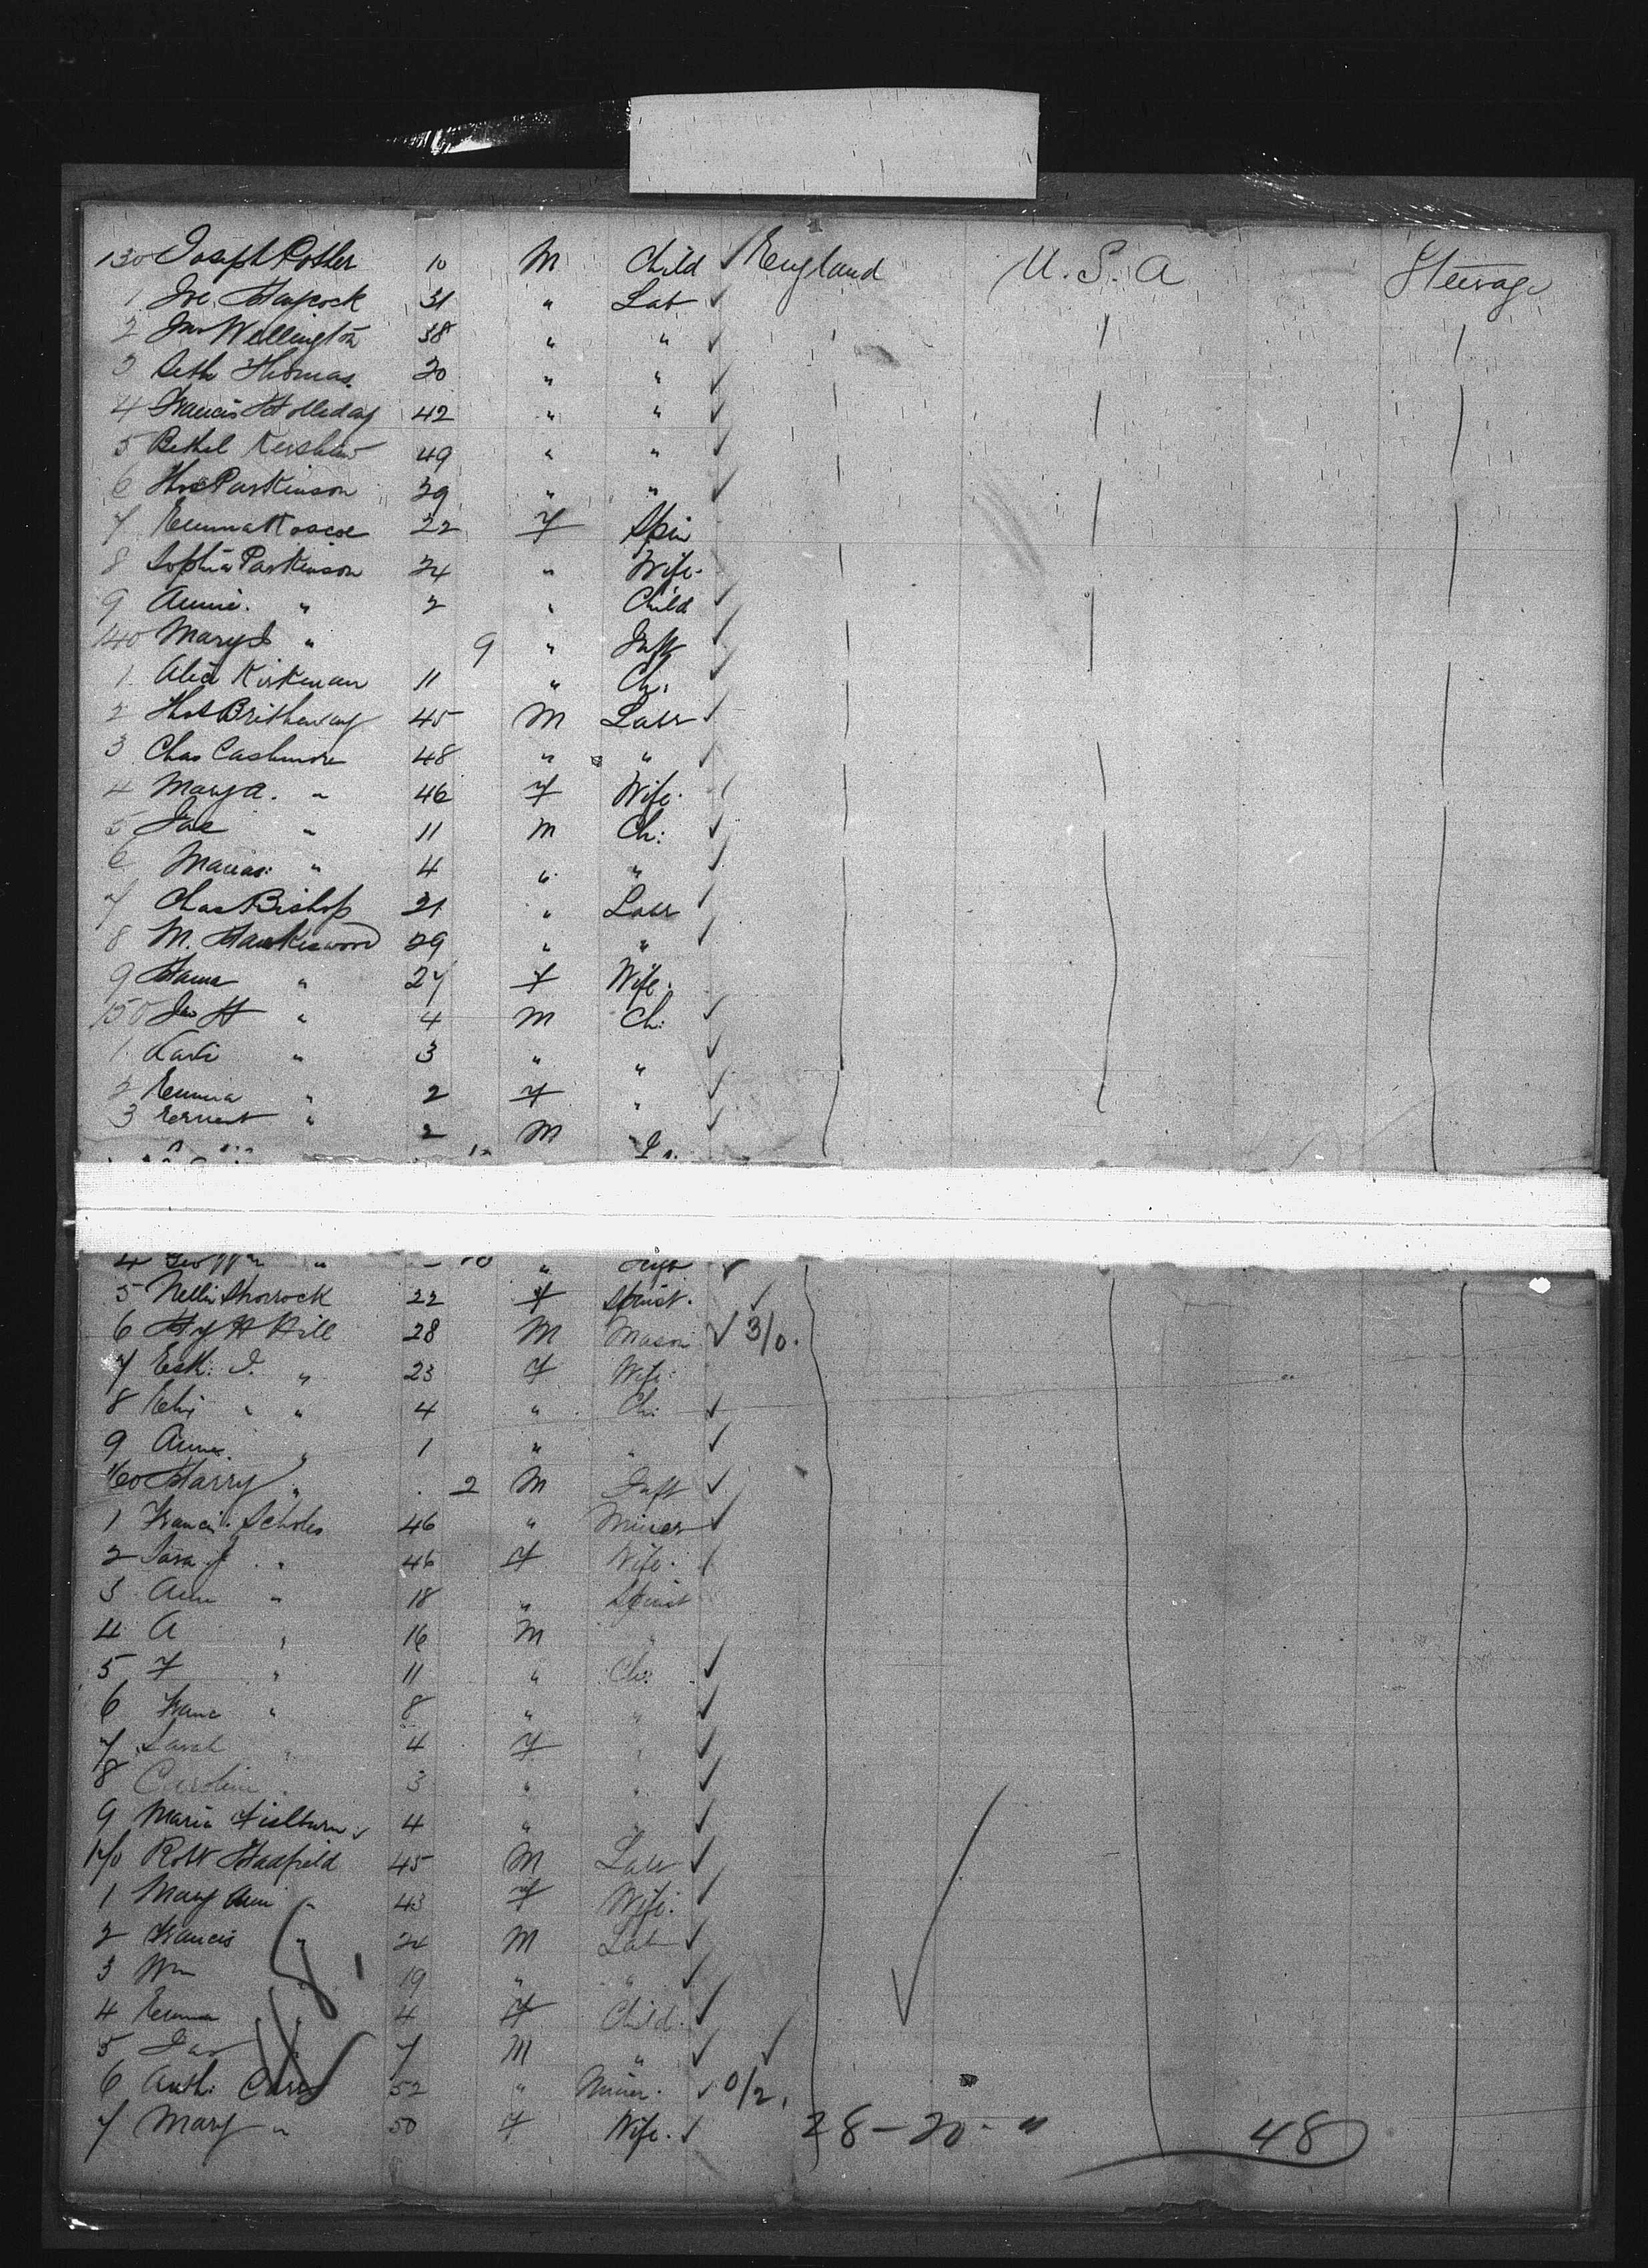 130 Joseph Potter 10 M Child ✓ England U.S.A Steerage
1 Haycock 31 " Lab ✓
2 Jno Wellington 38 " " ✓
3 Seth Thomas 20 " " ✓
4 Francis Holliday 42 " " ✓
5 Bethel Kershaw 49 " " ✓
6 Thos Parkinson 29 " " ✓
7 Emma Roscoe 22 F Spin
8 Sophia Parkinson 24 " Wife
9 Annie " 2 " Child ✓
140 Mary J " 9 " Inft ✓
1 Alice Kirkman 11 " Ch: ✓
2 Thos 45 M Labr ✓
3 Chas Cashmore 48 " " ✓
4 Mary A. " 46 F Wife ✓
5 Jas " 11 M Ch: ✓
6 " 4 " " ✓
7 Chas Bishop 21 " Labr ✓
8 M. 29 " " ✓
9 " 27 F Wife.
150 Jno H " 4 M Ch: ✓
1 " 3 " " ✓
2 Emma " 2 F " ✓
3 Ernest " 2 M " ✓
4 Geo Wm " - 10 " Inft ✓
5 Nellie Shorrock 22 F Spinst. ✓
6 Hy H Hill 28 M Mason ✓ 3/0.
7 J. " 23 F Wife.
8 " " 4 " Ch: ✓
9 Annie " 1 " " ✓
160 Harry " 2 M Inft ✓
1 Francis Scholes 46 " Miner ✓
2 Sara J " 46 F Wife. ✓
3 Ann " 18 " Spinst
4 A " 16 M "
5 F " 11 " Ch: ✓
6 Franc " 8 " " ✓
7 Sarah " 4 F " ✓
8 Caroline " 3 " " ✓
9 Maria 4 " " ✓
170 Robt Hadfield 45 M Labr ✓
1 Mary Ann " 43 F Wife. ✓
2 Francis " 24 M Lab ✓
3 Wm " 19 " " ✓
4 Emma " 4 F Child. ✓
5 Jas " 7 M " ✓ ✓
6 Anth: 52 " Miner. ✓ 0/2.
7 Mary " 50 F Wife. ✓ 28-20-" 48